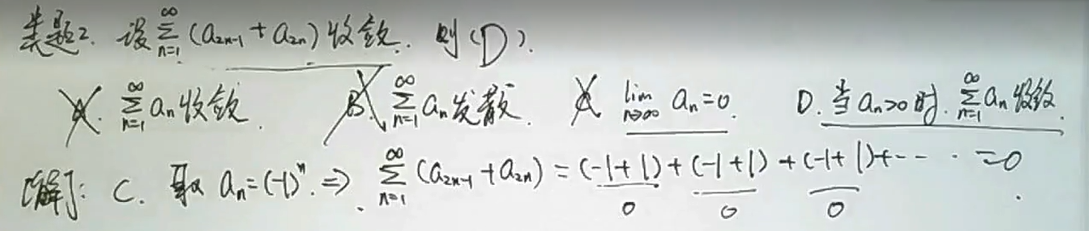 类题2. 设 ∑_{n=1}^{∞} (a_{2n-1} + a_{2n}) 收敛. 则(D).
A. ∑_{n=1}^{∞} a_n 收敛. B. ∑_{n=1}^{∞} a_n 发散. C. lim_{n→∞} a_n = 0. D. 当 a_n>0 时. ∑_{n=1}^{∞} a_n 收敛.
[解]: C. 取 a_n = (-1)^n. ⇒ ∑_{n=1}^{∞} (a_{2n-1} + a_{2n}) = (-1+1) + (-1+1) + (-1+1) + ⋯ = 0.
0 0 0